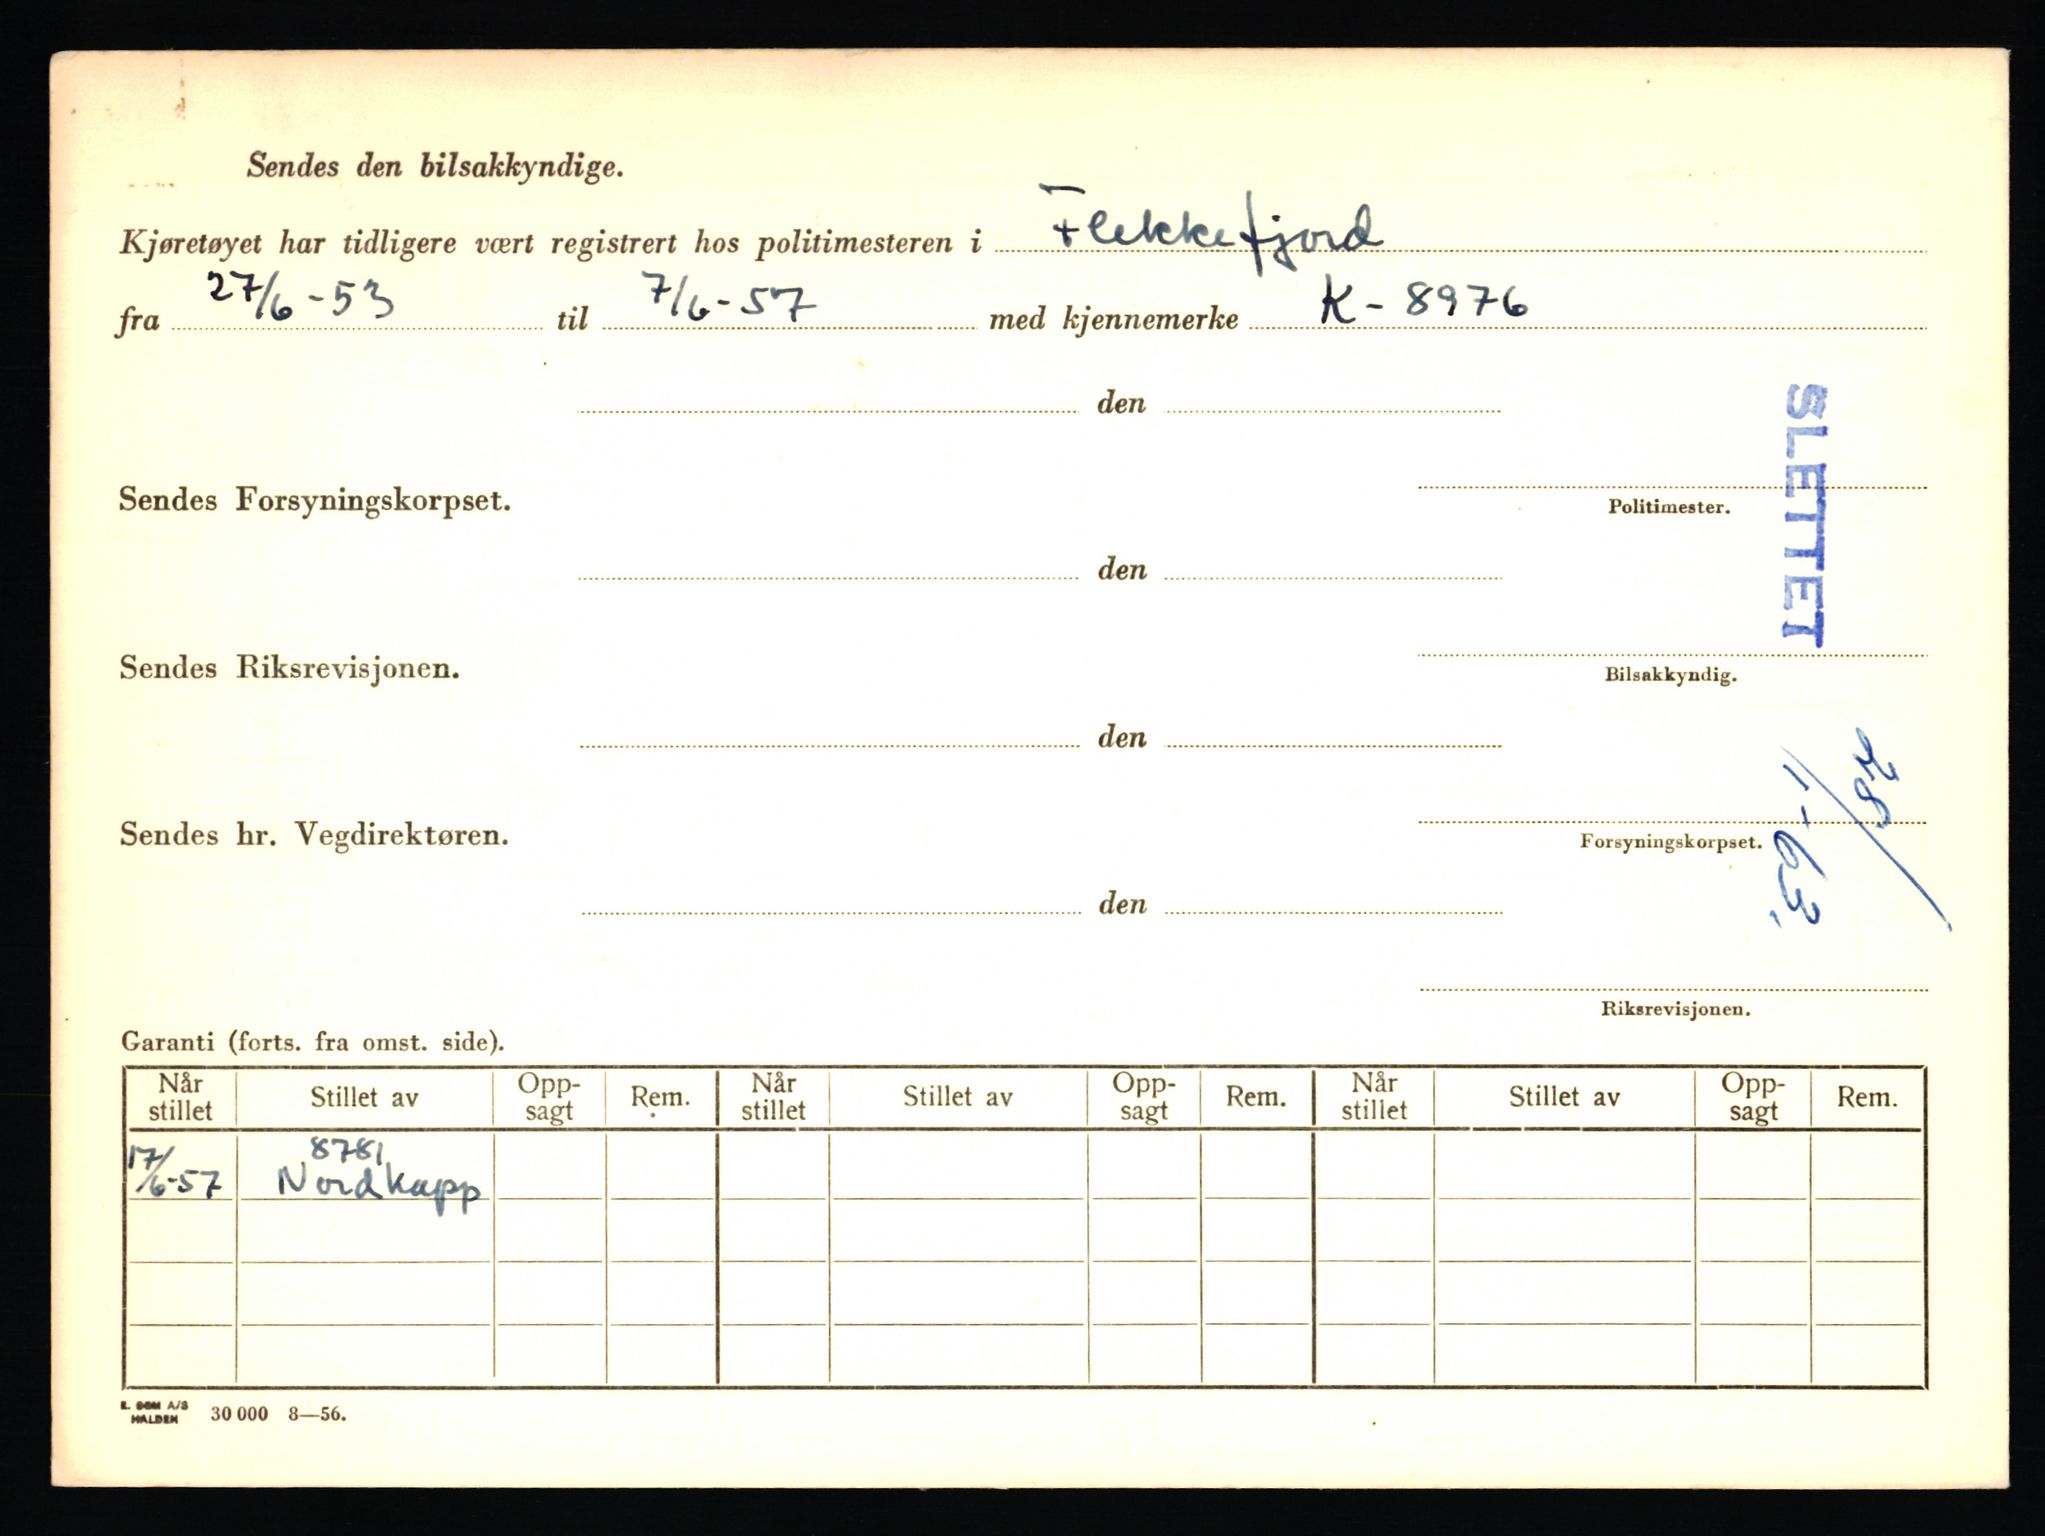 Sendes den bilsakkyndige.
Kjøretøyet har tidligere vært registrert hos politimesteren i Flekkefjord
fra 27/6-53 til 7/6-57 med kjennemerke K-8976
den
Politimester.
Sendes Forsyningskorpset.
den
Bilsakkyndig.
Sendes Riksrevisjonen.
den
Forsyningskorpset.
Sendes hr. Vegdirektøren.
den
Riksrevisjonen.
SLETTET
28/1-63.
Garanti (forts. fra omst. side).
Når stillet Stillet av Opp-sagt Rem. Når stillet Stillet av Opp-sagt Rem. Når stillet Stillet av Opp-sagt Rem.
17/6-57 8781 Nordkapp
E. SEM A/S
HALDEN 30 000 8—56.